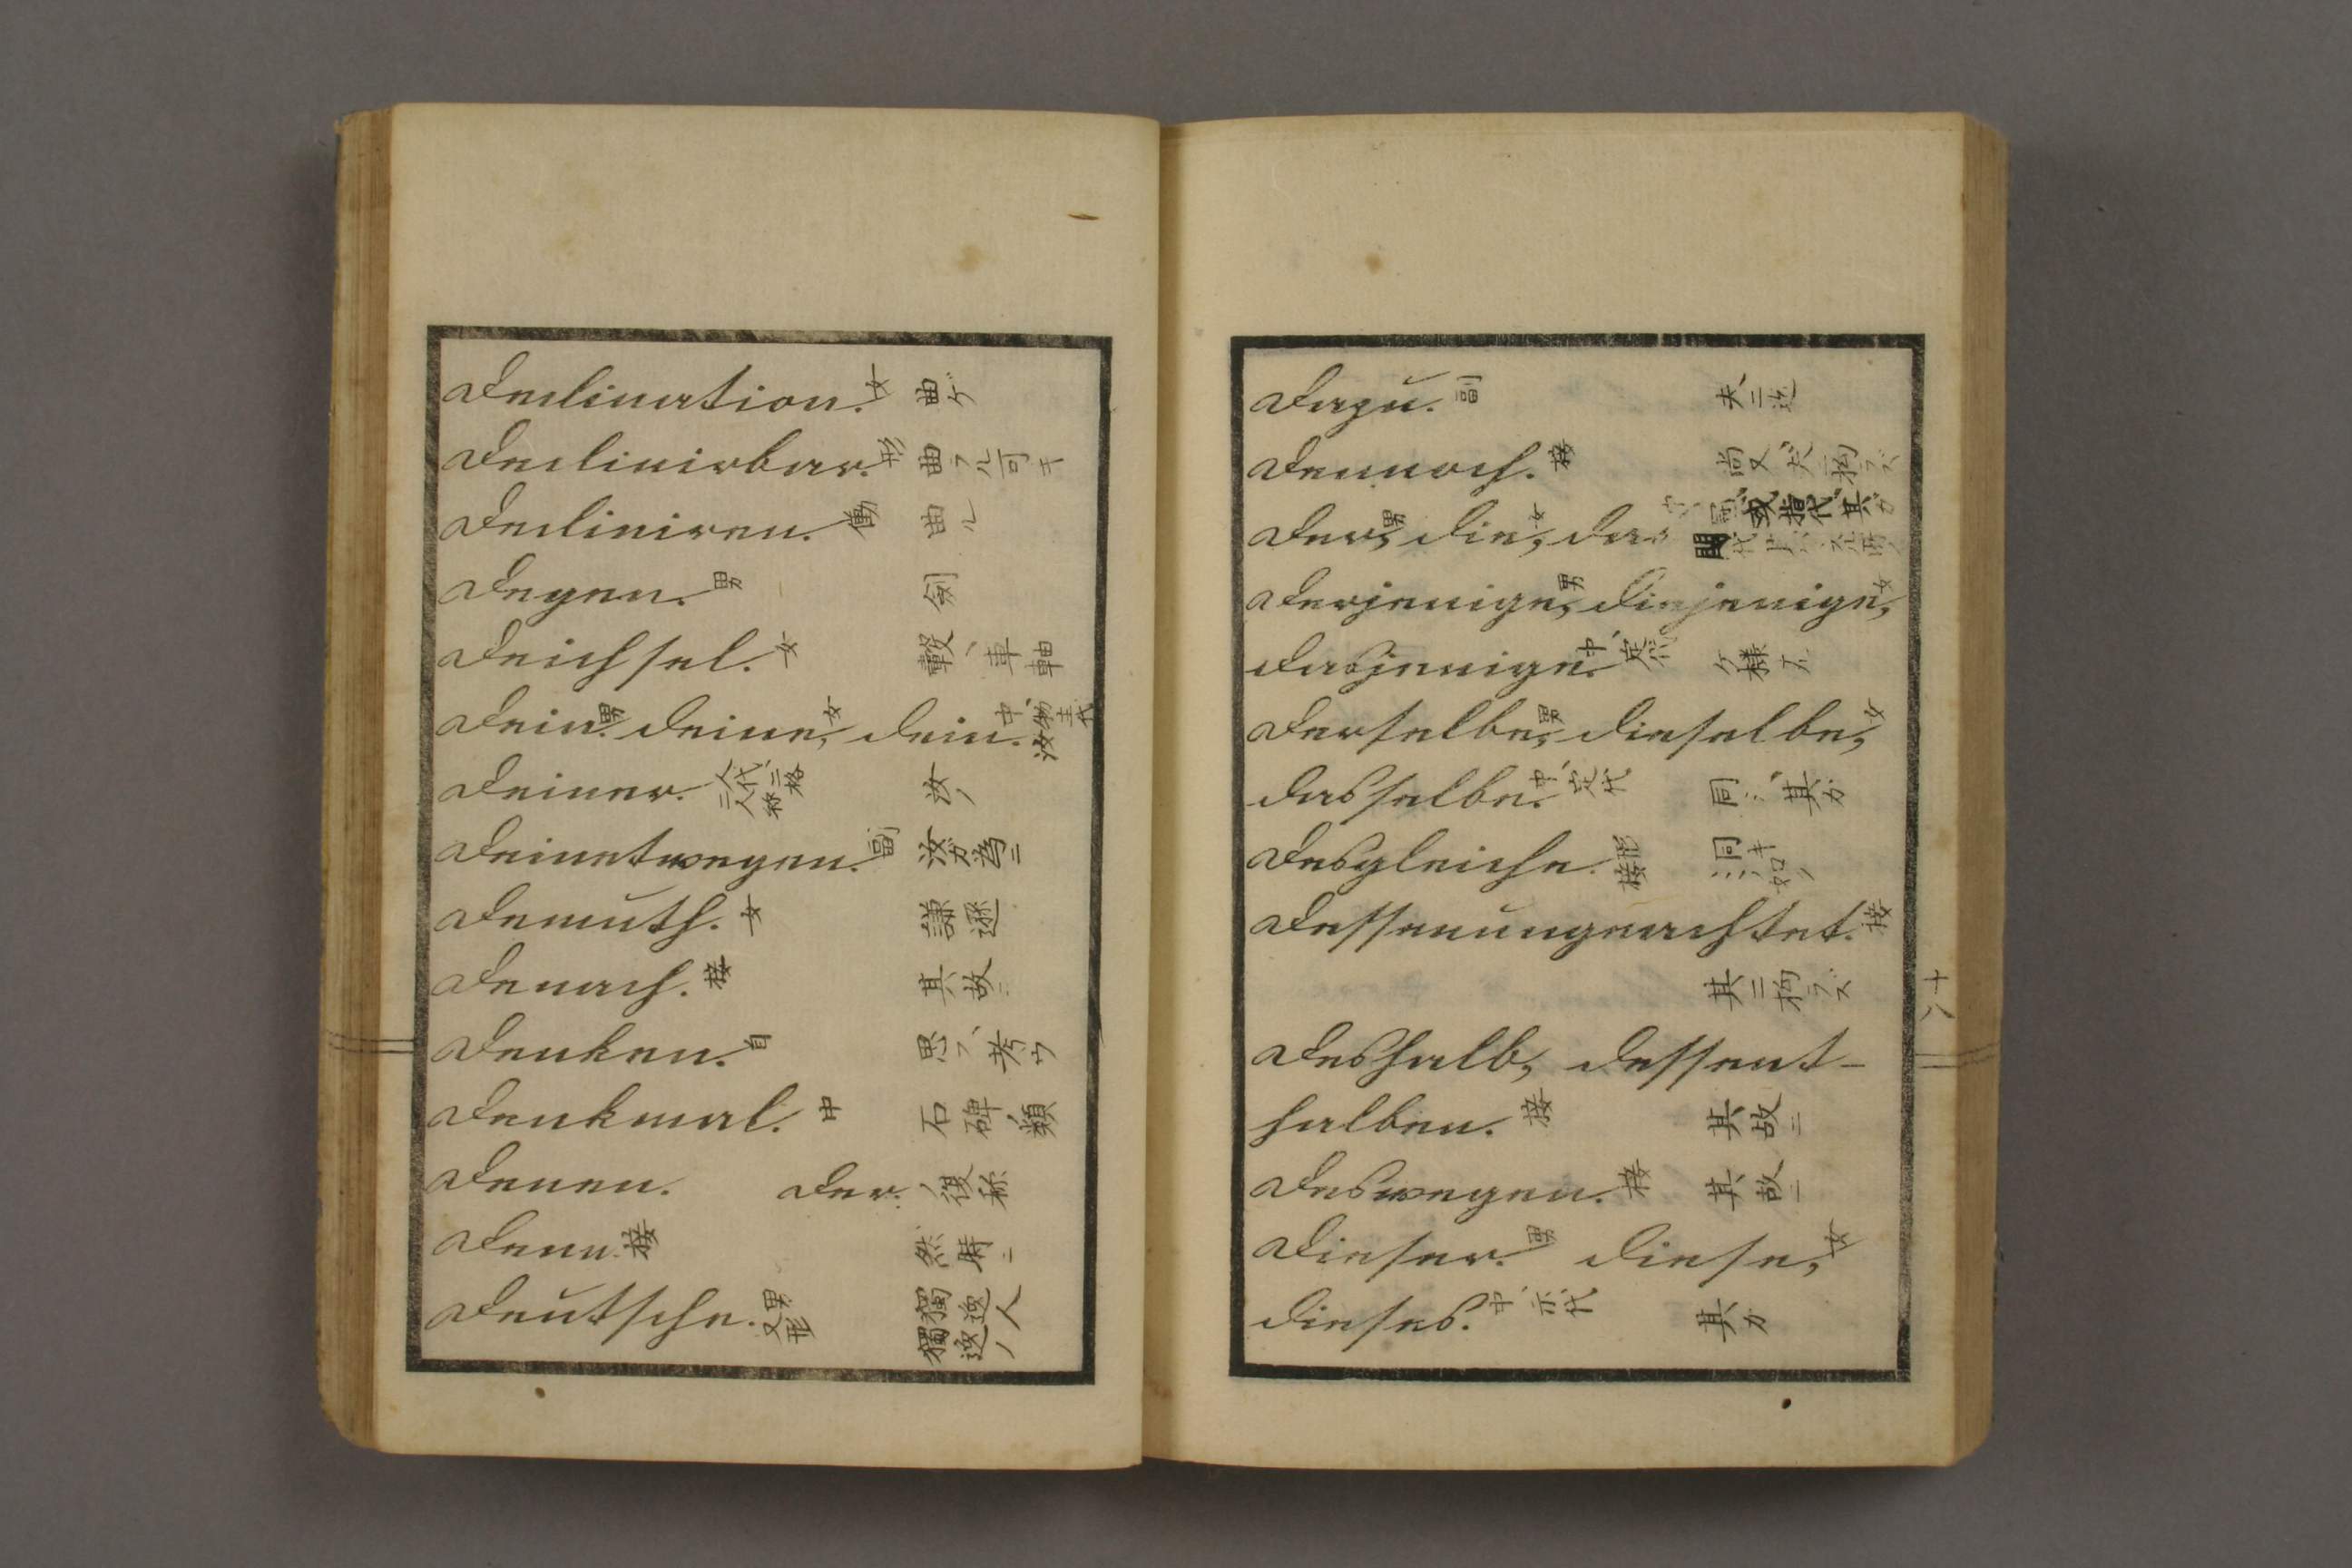 Declination. 女 曲ゲ
Declinirbar. 形 曲フル可キ
Decliniren. 働 曲ル
Degen. 男 劍
Deichsel. 女 轂、車軸
Dein. 男 deine, 女 dein. 中、物主代 汝
Deiner. 二人代 二格 汝ノ
Deinetwegen. 副 汝ガ為ニ
Demuth. 女 謙遜
Denach. 接 其故ニ
Denken. 自 思フ、考ウ
Denkmal. 中 石碑ノ類
Denen. Der. ノ復称
Denn. 接 然時ニ
Deutsche. 男又形 獨逸人 獨逸ノ
Dazu. 副 夫ニ迄
Dennoch. 接 尚又
Der, 男 die, 女 das
Derjenige, 男 diejenige, 女
dasjenige. 中、定代
Derselbe, 男 dieselbe, 女
dasselbe. 中、定代 同ジ、其ガ
Desgleiche. 形接 同ジキ
Dessenungeachtet. 接
其ニ拘ラズ
Deshalb, dessent-
halben. 接 其故ニ
Deswegen. 接 其故ニ
Dieser. 男 diese, 女
dieses. 中、示代 其ガ
十八